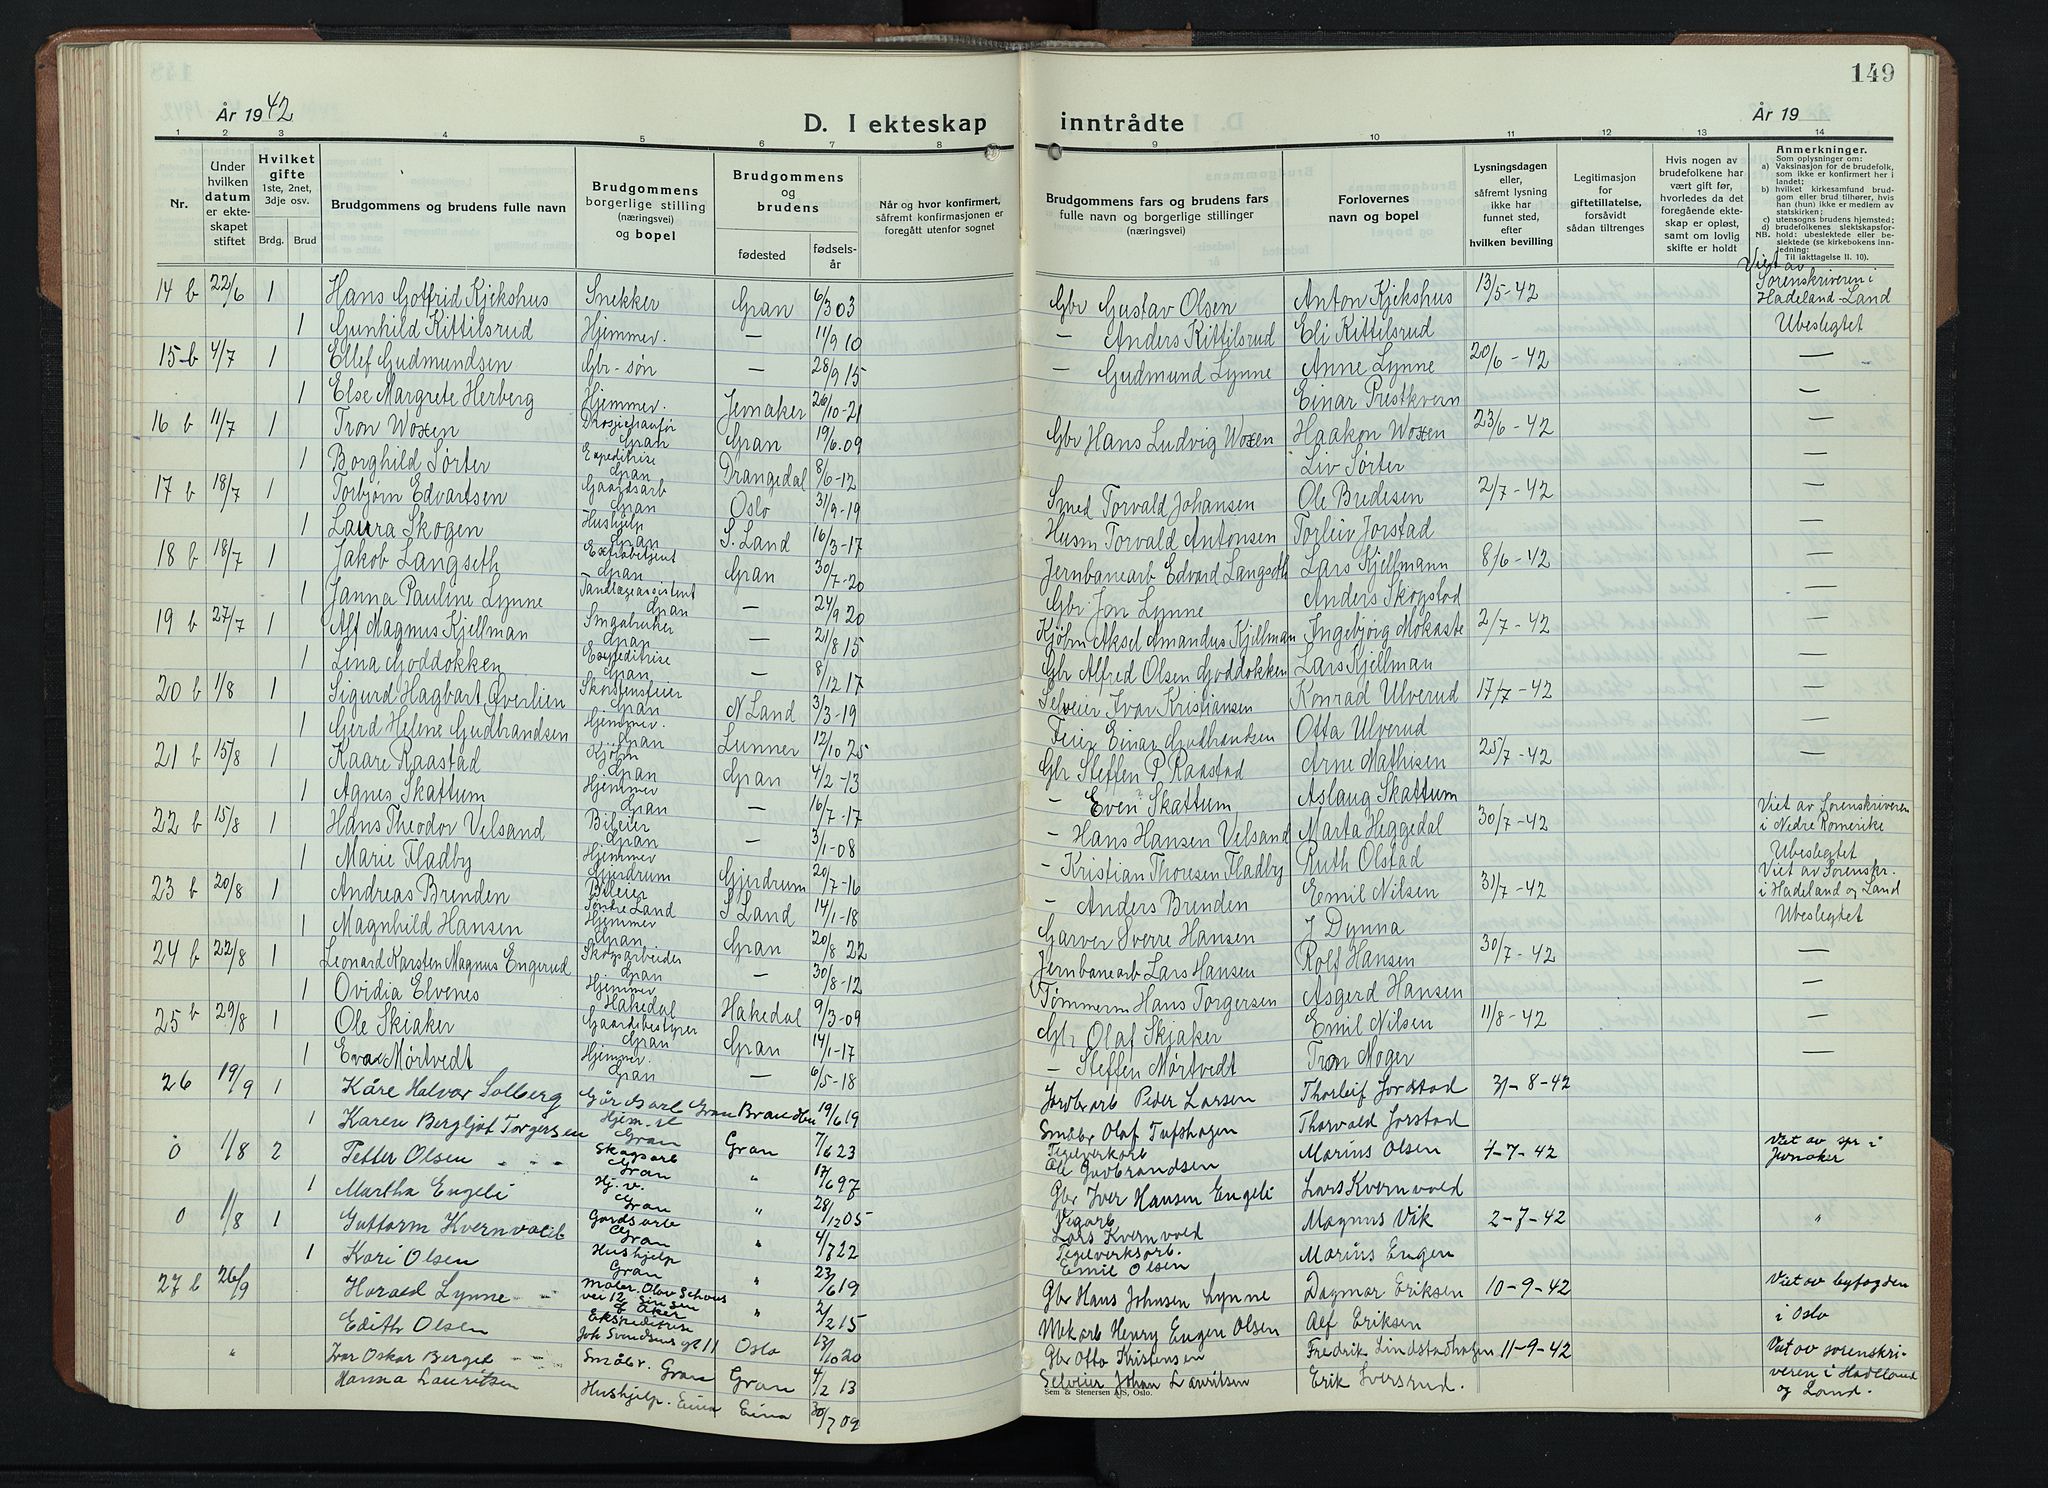 149
År 1942
D. I ekteskap inntrådte
År 19
1 2 3 4 5 6 7 8 9 10 11 12 13 14
Nr.
Under hvilken datum er ekteskapet stiftet
Hvilket gifte 1ste, 2net, 3dje osv.
Brdg. Brud
Brudgommens og brudens fulle navn
Brudgommens borgerlige stilling (næringsvei) og bopel
Brudgommens og brudens
fødested
fødselsår
Når og hvor konfirmert, såfremt konfirmasjonen er foregått utenfor sognet
Brudgommens fars og brudens fars fulle navn og borgerlige stillinger (næringsvei)
Forlovernes navn og bopel
Lysningsdagen eller, såfremt lysning ikke har funnet sted, efter hvilken bevilling
Legitimasjon for giftetillatelse, forsåvidt sådan tiltrenges
Hvis nogen av brudefolkene har vært gift før, hvorledes da det foregående ekteskap er opløst, samt om lovlig skifte er holdt
Anmerkninger.
Som oplysninger om:
a) Vaksinasjon for de brudefolk, som ikke er konfirmert her i landet;
b) hvilket kirkesamfund brudgom eller brud tilhører, hvis han (hun) ikke er medlem av statskirken;
c) utensogns brudens hjemsted;
d) brudefolkenes slektskapsforhold: ubeslektede eller beslektede (se kirkebokens innledning:
NB. Til iakttagelse II. 10).
14 b 22/6 1 Hans Gotfrid Kjekshus Snekker Gran 6/3 03 Gbr Gustav Olsen Anton Kjekshus 13/5-42 Viet av Sorenskriveren i Hadeland-Land
1 Gunhild Kittilsrud Hjemmev. — 11/9 10 — Anders Kittilsrud Eli Kittilsrud Ubeslegtet
15-b 4/7 1 Ellef Gudmundsen Gbr-søn — 28/9 15 — Gudmund Lynne Anne Lynne 20/6-42 —
1 Else Margrete Herberg Hjemmev. Jevnaker 26/10-21 Einar Prestkvern —
16 b 11/7 1 Tron Woxen Drosjechauffør Gran Gran 19/6.09 Gbr Hans Ludvig Woxen Haakon Woxen 23/6-42 —
1 Borghild Sørter Expeditrise Gran Drangedal 8/6-12 Liv Sørter —
17 b 18/7 1 Torbjørn Edvartsen Gaardsarb Gran Oslo 31/9-19 Smed Torvald Johansen Ole Bredesen 2/7-42 —
1 Laura Skogen Hushjelp Gran S. Land 16/3-17 Husm Torvald Antonsen Torleiv Jorstad —
18 b 18/7 1 Jakob Langseth Extrabetjent Gran Gran 30/7-20 Jernbanearb Edvard Langseth Lars Kjellmann 8/6-42 —
1 Janna Pauline Lynne Tandlægeassistent Gran — 24/9 20 Gbr Jon Lynne Anders Skogstad —
19 b 27/7 1 Alf Magnus Kjellman Smaabruker Gran — 21/8 15 Kjøbm Aksel Amandus Kjellman Ingebjørg Mokaste 2/7-42 —
1 Lena Goddokken Expeditrise Gran — 8/12 17 Gbr Alfred Olsen Goddokken Lars Kjellman —
20 b 1/8 1 Sigurd Hagbart Øverlien Skorstensfeier Gran N Land 3/3-19 Selveier Ivar Kristiansen Konrad Ulverud 17/7-42 —
1 Gerd Helene Gudbrandsen Hjemmev. Gran Lunner 12/10 25 Feier Einar Gudbrandsen Otta Ulverud —
21 b 15/8 1 Kaare Raastad Kjøbm Gran Gran 4/2-13 Gbr Steffen P Raastad Arne Mathisen 25/7-42 —
1 Agnes Skattum Hjemmev Gran — 16/7-17 — Even Skattum Aslaug Skattum —
22 b 15/8 1 Hans Theodor Velsand Bileier Gran — 3/1-08 — Hans Hansen Velsand Marta Heggedal 30/7-42 Viet av Sorenskriveren i Nedre Romerike
1 Marie Fladby Hjemmev Gjerdrum Gjerdrum 20/7-16 — Kristian Thoresen Fladby Ruth Olstad Ubeslegtet
23 b 20/8 1 Andreas Brenden Bileier Søndre Land S Land 14/1-18 — Anders Brenden Emil Nilsen 31/7-42 Viet av Sorenskr. i Hadeland og Land
1 Magnhild Hansen Hjemmev Gran Gran 20/8 22 Garver Sverre Hansen J Dynna Ubeslegtet
24 b 22/8 1 Leonard Karsten Magnus Engerud Skogsarbeider Gran — 30/8-12 Jernbanearb Lars Hansen Rolf Hansen 30/7-42 —
1 Ovidia Elvenes Hjemmev Hakedal Hakedal 9/3-09 Tømmerm Hans Torgersen Asgerd Hansen —
25 b 29/8 1 Ole Skiaker Gaardsbestyrer Gran Gran 14/1-17 Gbr Olaf Skiaker Emil Nilsen 11/8-42 —
1 Eva Mørtvedt Hjemmev. Gran — 6/5-18 — Steffen Mørtvedt Tron Moger —
26 19/9 1 Kåre Halvor Solberg Gårdsarb Gran Brandbu 19/6 19 Jordbr arb Peder Larsen Thorleif Jorstad 31-8-42
1 Karen Bergljot Torgersen Hjem.v. Gran Gran 7/6 23 Småbr Olaf Tufshagen Thorvald Jorstad
0 1/8 2 Petter Olsen Skogsarb Gran " 17/6 97 Teglverkarb Ole Gudbrandsen Marius Olsen 1-7-42 Viet av spr i Jevnaker
1 Martha Engeli Hj. v. Gran " 28/12 05 Gbr Iver Hansen Engeli Lars Kvernvold
0 1/8 1 Guttorm Kvernvold Gårdsarb Gran " 4/8 22 Vegarb Lars Kvernvold Magnus Vik 2-7-42 "
1 Kari Olsen Hushjelp Gran " 23/6 19 Teglverksarb. Emil Olsen Marius Engen
27 b 26/9 Harald Lynne Maler. Olav Schous vei 12 Sinsen Ø Aker " 2/2 15 Gbr Hans Johnsen Lynne Dagmar Eriksen 10-9-42 Viet av byfogden i Oslo
Edith Olsen Ekspeditrise Joh Svendsens gt 11 Oslo 13/10 20 Mek arb Henry Engen Olsen Alf Eriksen
" Ivar Oskar Berget Småbr. Gran Gran 4/2 13 Gbr Otto Kristensen Fredrik Lindstadhagen 11-9-42 Viet av sorenskriveren i Hadeland og Land.
Hanna Lauritsen Hushjelp. Eina Eina 30/7 09 Selveier Johan Lauritsen Erik Iversrud.
Sem & Stenersen A/S, Oslo.